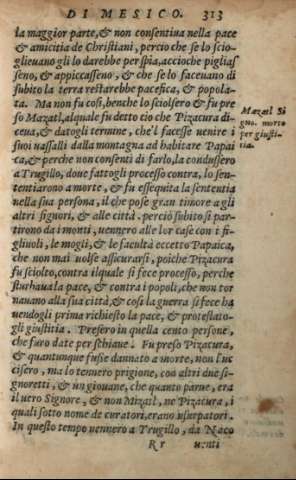 DI MESICO. 313
la maggior parte, & non consentiua nella pace
& amicitia de Christiani, percio che se lo scio-
glieuano gli lo darebbe per spia, accioche pigliaſ
ſeno, & appiccaſſeno, & che se lo faceuano di
subito la terra restarebbe pacefica, & popola-
ta. Ma non fu cosi, benche lo sciolsero & fu pre
so Mazatl, alquale fu detto cio che Pizacura di-
ceua, & datogli termine, che'l facesse uenire i
suoi uassalli dalla montagna ad habitare Papai
ca, & perche non consenti di farlo, la condussero
a Trugillo, doue fattogli processo contra, lo sen-
tentiarono a morte, & fu essequita la sententia
nella sua persona, il che pose gran timore a gli
altri signori, & alle città. perciò subito si par-
tirono da i monti, uennero alle lor case con i fi-
gliuoli, le mogli, & le facultà eccetto Papaica,
che non mai uolse assicurarsi, poiche Pizacura
fu sciolto, contra il quale si fece processo, perche
sturbaua la pace, & contra i popoli, che non tor
nauano alla sua città, & cosi la guerra si fece ha
uendogli prima richiesto la pace, & protestato-
gli giustitia. Presero in quella cento persone,
che furo date per schiaue. Fu preso Pizacura,
& quantunque fusse dannato a morte, non l'uc
cisero, ma lo tennero prigione, con altri due si-
gnoretti, & un giouane, che quanto parue, era
il uero Signore, & non Mizatl, ne Pizacura, i
quali sotto nome de curatori, erano usurpatori.
In questo tempo uennero a Trugillo, da Naco
Rr uenti
Mazatl Si
gno. morto
per giusti-
tia.